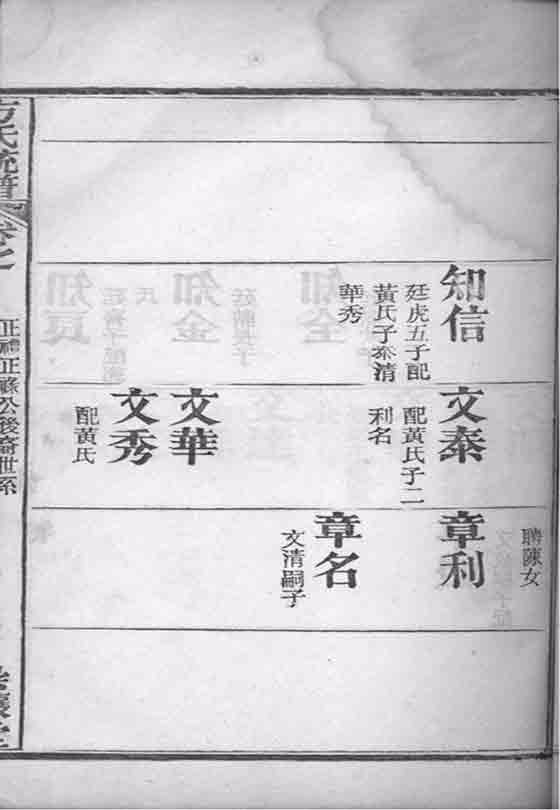 知信
廷虎五子配
黃氏子泰清
華秀
文泰
配黃氏子二
利名
文華
文秀
配黃氏
聘陳女
章利
章名
文清嗣子
方氏統譜
卷之
公後裔世系